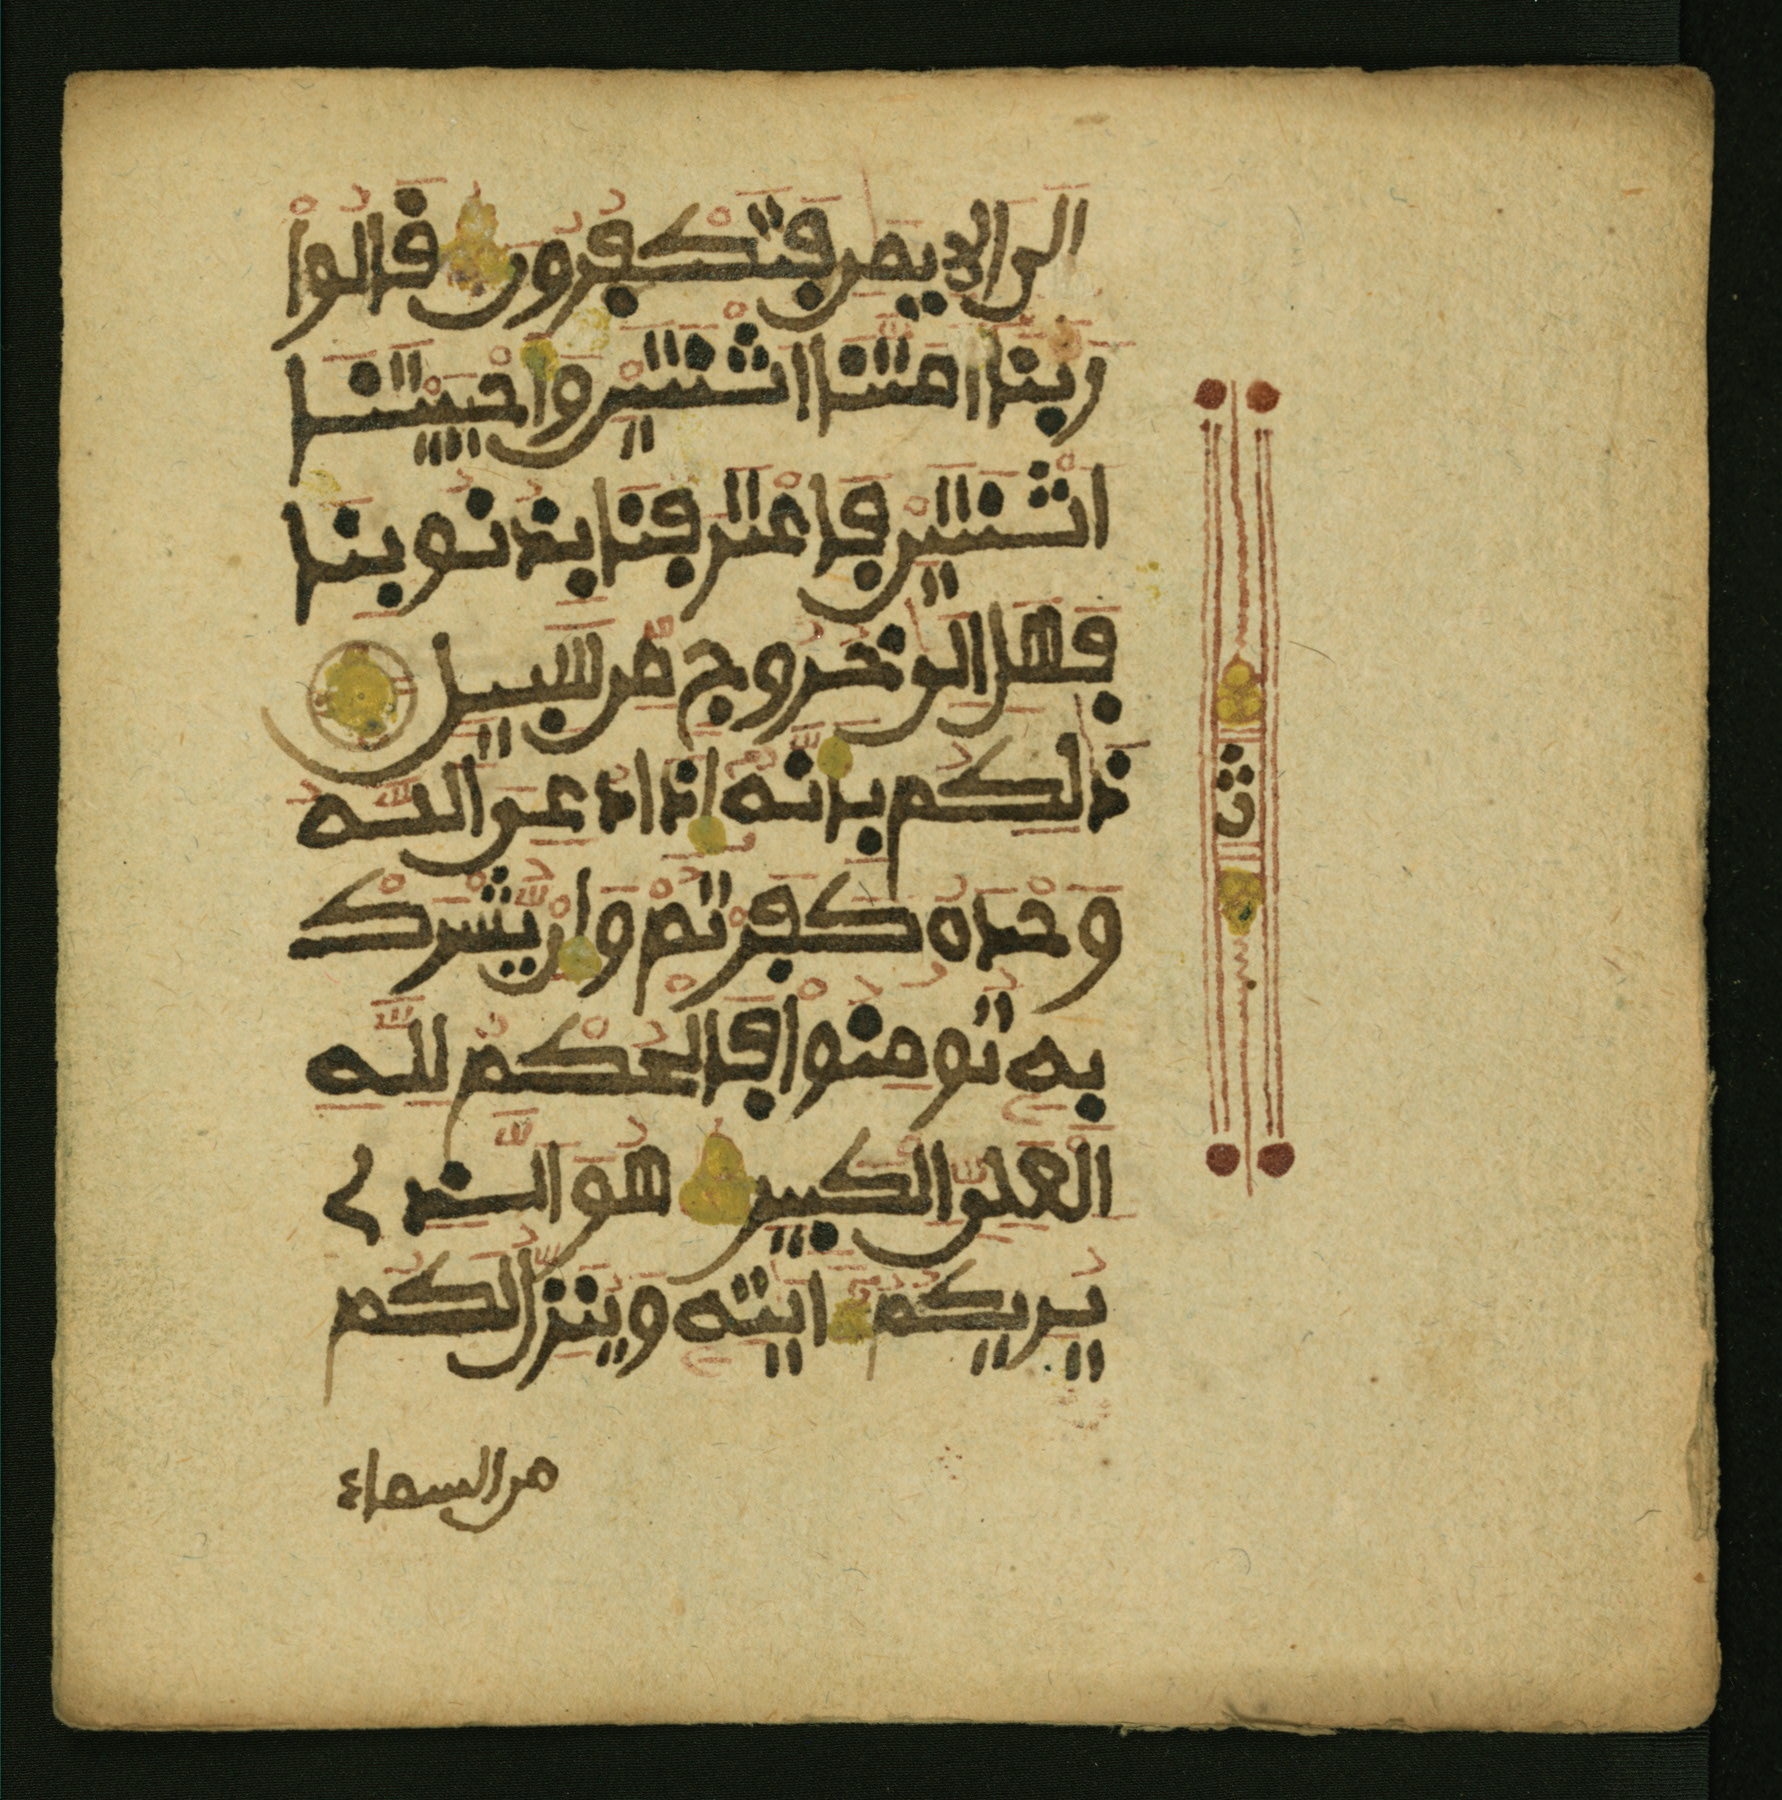 الى الايمن فتكفرون قالوا
ربنا امتنا اثنتين واحييتنا
اثنتين فاعترفنا بذنوبنا
فهل الى خروج من سبيل
ذلكم بانه اذا دعى الله
وحده كفرتم وان يشرك
به تومنوا فالحكم لله
العلى الكبير هو الذى
يريكم ايته وينزل لكم
من السماء
ث